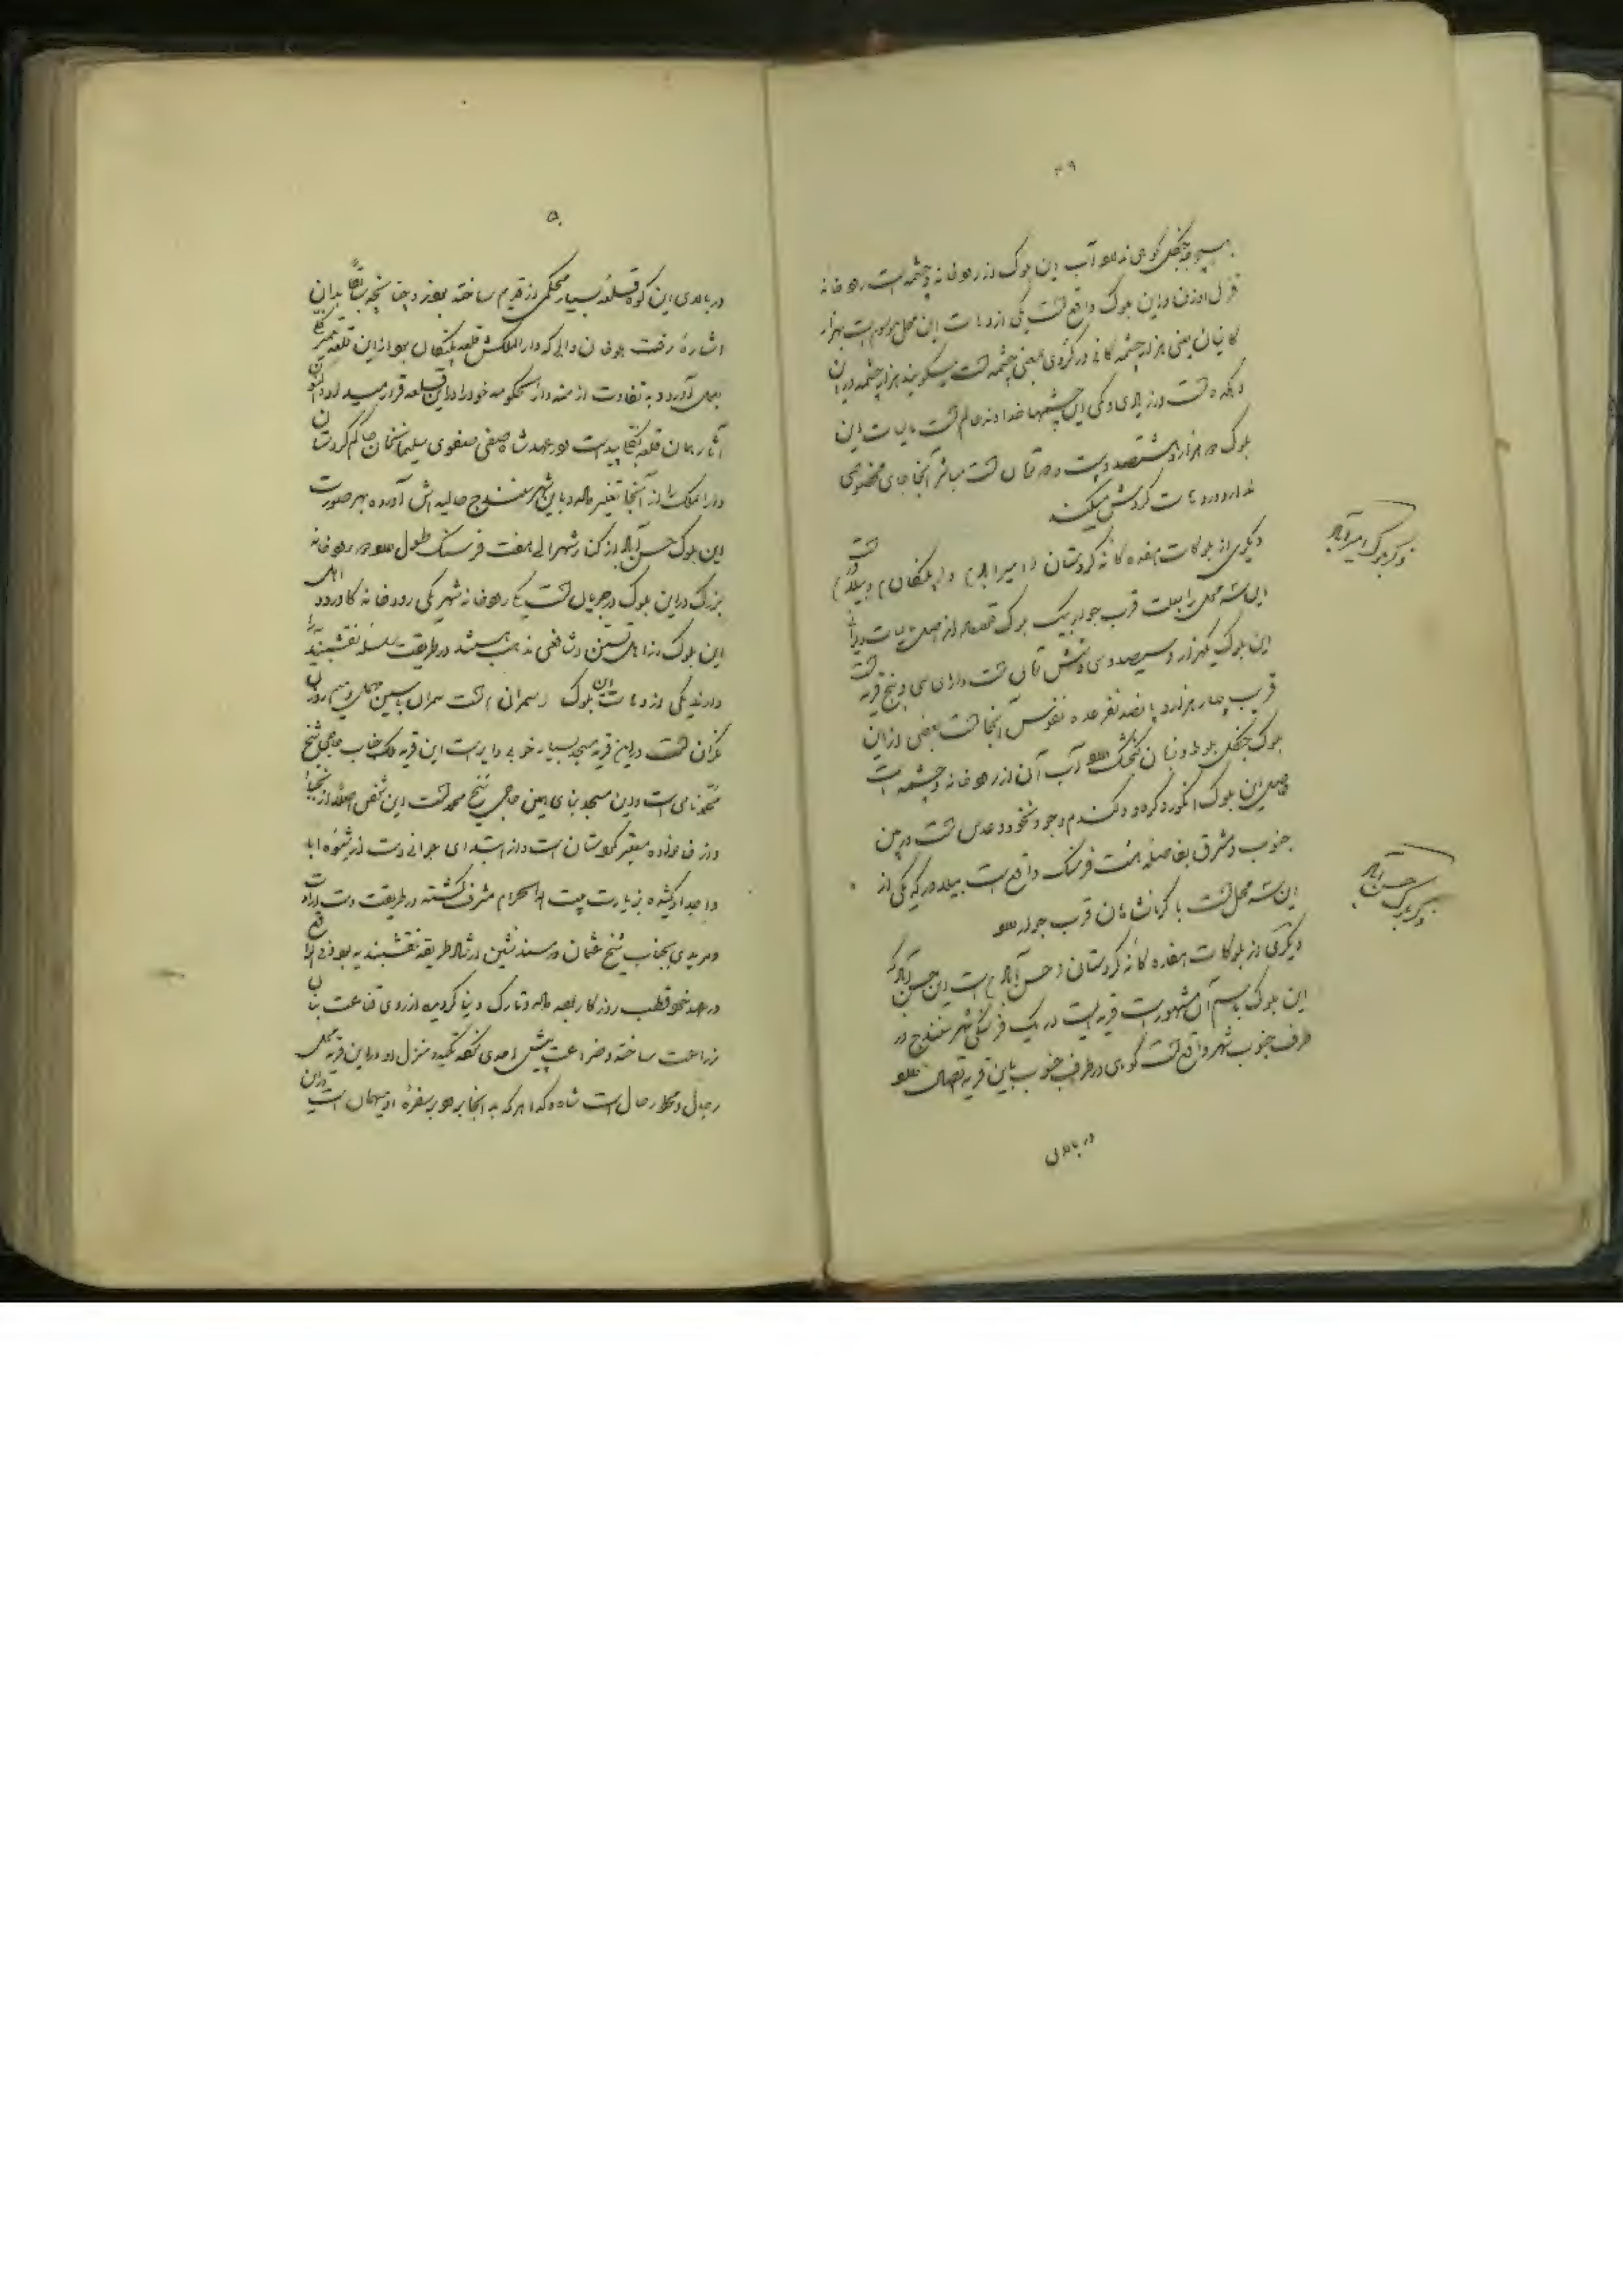 ۴۹
بهیچوجه جنگل کوهی ندارد آب این بلوک از رودخانه و چشمه است رودخانه
قزل اوزن در این بلوک واقع است یکی از دهات این محل موسوم است بهزار
کانیان یعنی هزار چشمه کانی در کردی بمعنی چشمه است میگویند هزار چشمه در این
دهکده است و زیادی و کمی این چشمها خدا داند عالم است مالیات این
بلوک دو هزار و هشتصد و بیست و دو تومان است مباشر آنجا جای مخصوصی
ندارد در دهات گردش میکند
ذکر بلوک امیرآباد
دیگری از بلوکات هفده گانه کردستان (امیراباد) و (پلنگان) و (بیلور) است
این سه محل را بعلت قرب جوار یک بلوک اصل مالیات
این بلوک یکهزار و سیصد و سی و شش تومان است دارای سی و پنج قریه است
قریب چهار هزار و پانصد نفر عده نفوس آنجا است بعضی از این
بلوک جنگل بلوط و آب آن از رودخانه و چشمه است
حاصل این بلوک انگور و گردو و گندم و جو و نخود و عدس است در بین
جنوب و مشرق بفاصله هشت فرسنگ واقع است بیلور که یکی از
این سه محل است با کرمانشاهان قرب جوار دارد
ذکر بلوک حسن آباد
دیگری از بلوکات هفده گانه کردستان (حسن آباد) است این حسن آباد که
این بلوک باسم آن مشهور است قریه ایست در یک فرسنگی شهر سنندج در
طرف جنوب شهر واقع است کوهی در طرف جنوب باین قریه اتصال دارد
در بالای
۵۰
در بالای این کوه قلعه بسیار محکمی از قدیم ساخته بودند چنانچه سابقاً بدان
اشاره رفت والی که دارالملکش قلعه پلنگان بود از این قلعه تعمیر
بعمل آورد و به تفاوت ازمنه دارالحکومه خود را در این قلعه قرار میداد
آثار همان قلعه پیداست در عهد شاه صفی صفوی سلیمانخان حاکم کردستان
دارالملک را از آنجا تغییر داده و باین شهر سنندج حالیه اش آورده بهر صورت
این بلوک حسن آباد از کنار شهر الی هفت فرسنگ طول دارد دو رودخانه
بزرگ در این بلوک در جریان است یکی رودخانه شهر یکی رودخانه کاورود اهل
این بلوک از اهل تسنن و شافعی مذهب هستند در طریقت سلسله نقشبندیه را
دارند یکی از دهات این بلوک (سمران) است سمران
گران است در این قریه مسجد بسیار خوبی دایر است این قریه ملک جناب حاجی شیخ
محمد نامی است و این مسجد بنای همین حاجی شیخ محمد است این شخص اصلاً از نجبا
و از خانواده معتبر کردستان است و از ابتدای جوانی دست از شیوه آبا
و اجداد کشیده بزیارت بیت الله الحرام مشرف گشته در طریقت دست ارادت
و مریدی بجناب شیخ عثمان در مسند نشین ارشاد طریقه نقشبندیه بود فی الواقع
در حد خود قطب روزگار بوده و تارک دنیا گردیده از روی قناعت بنای
زراعت ساخته و ضراعت پیش احدی نکرده منزل او در این قریه محل
رجال و محط رحال است شاه و گدا هر که به آنجا برود بر سفره او میهمان است در این